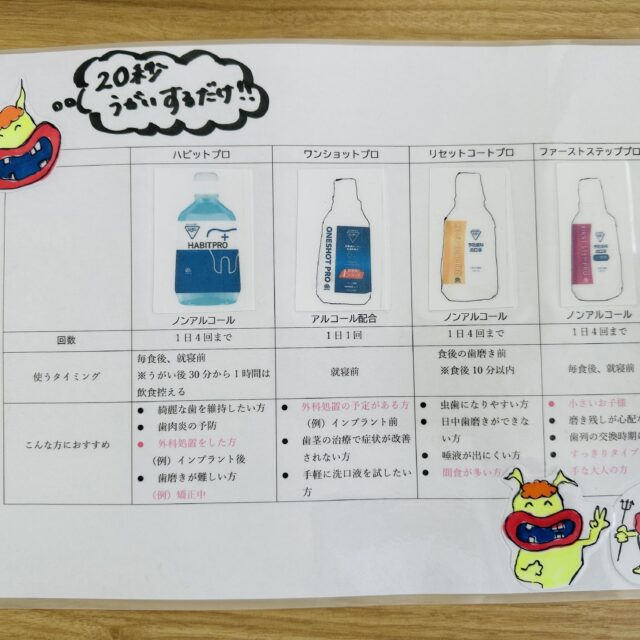 20秒
うがいするだけ!!
ハビットプロ
ワンショットプロ
リセットコートプロ
ファーストステッププロ
HABITPRO
ONESHOT PRO
ノンアルコール
アルコール配合
ノンアルコール
ノンアルコール
回数
1日4回まで
1日1回
1日4回まで
1日4回まで
使うタイミング
毎食後、就寝前
※うがい後30分から1時間は
飲食控える
就寝前
食後の歯磨き前
※食後10分以内
毎食後、就寝前
こんな方におすすめ
● 綺麗な歯を維持したい方
● 歯肉炎の予防
● 外科処置をした方
(例)インプラント後
● 歯磨きが難しい方
(例)矯正中
● 外科処置の予定がある方
(例)インプラント前
● 歯茎の治療で症状が改善
されない方
● 手軽に洗口液を試したい
方
● 虫歯になりやすい方
● 日中歯磨きができな
い方
● 唾液が出にくい方
● 間食が多い方
● 小さいお子様
● 磨き残しが心配
● 歯列の交換時期の
● すっきりタイプ
手な大人の方